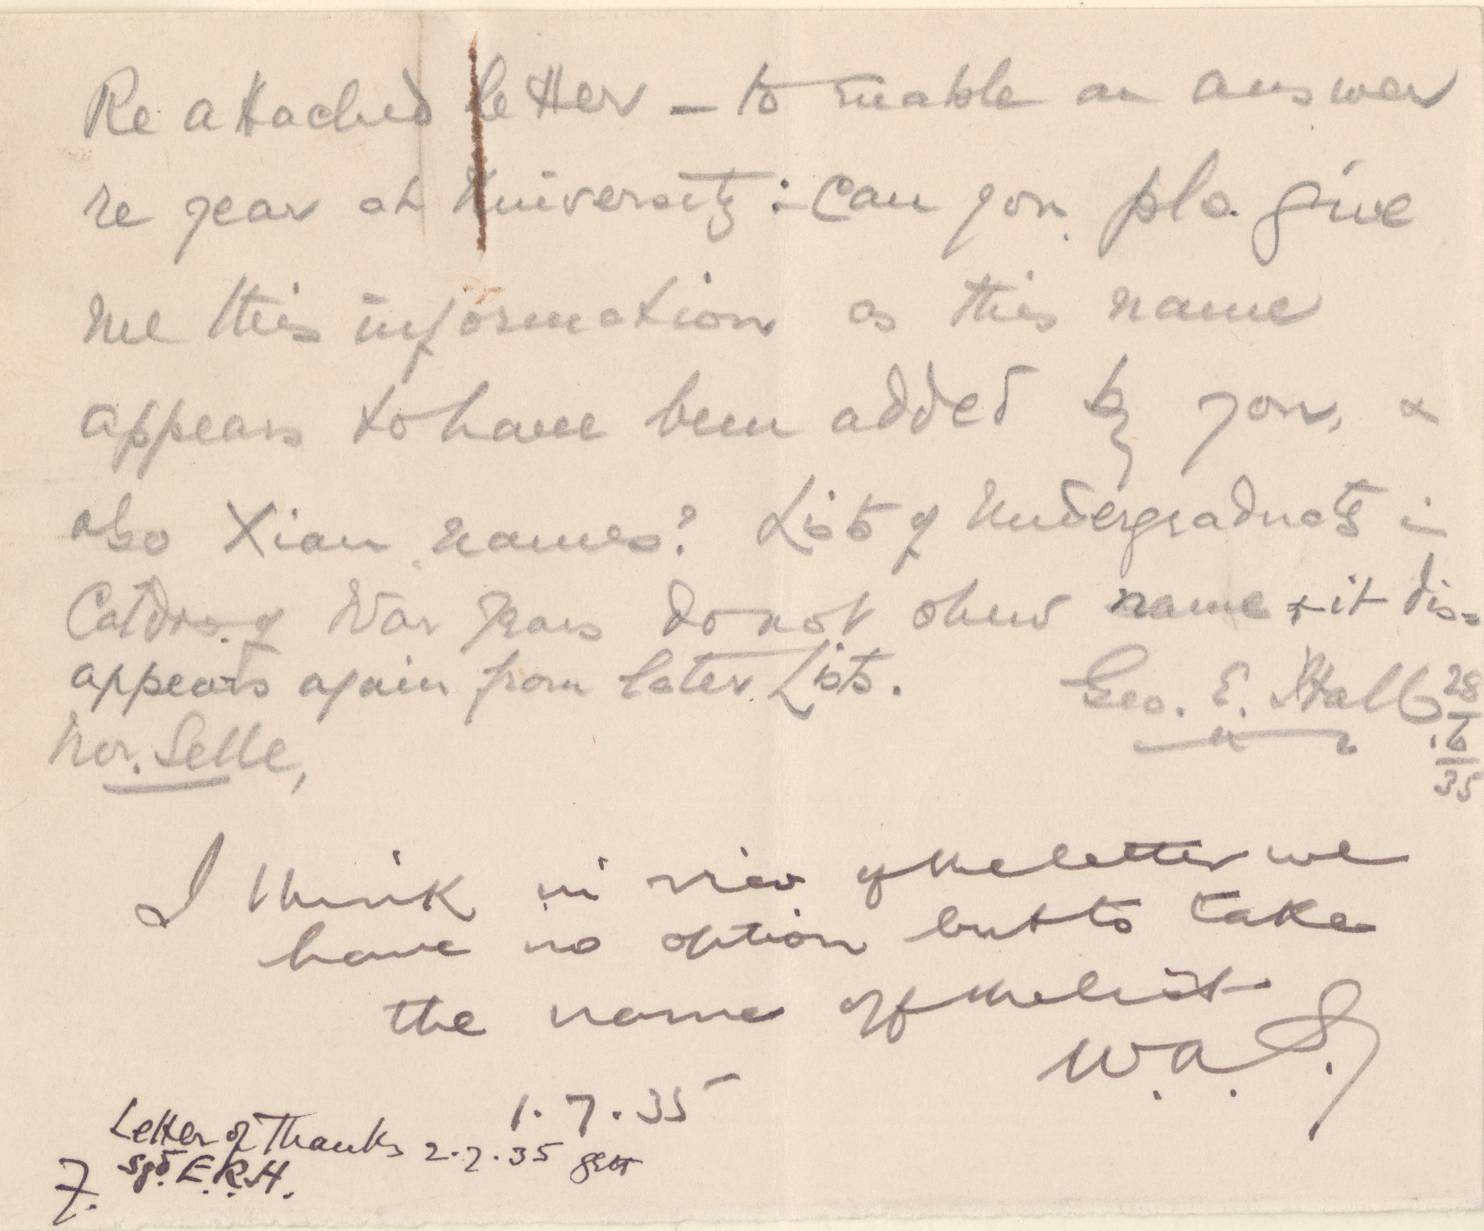 Re attached letter – to enable an answer
re year at University:- Can you pls. give
me this information as this name
appears to have been added by you, &
also Xian names? Lists of Undergraduates in
Caldrs. of War Years do not show name & it dis=
appears again from later Lists. Geo. E. Hall 28/6/35
Mr. Selle,
I think in view of the letter we
have no option but to take
the name off the list.
W.A.S.
1.7.35
Letter of Thanks 2.7.35
sgd. E.R.H.
F.